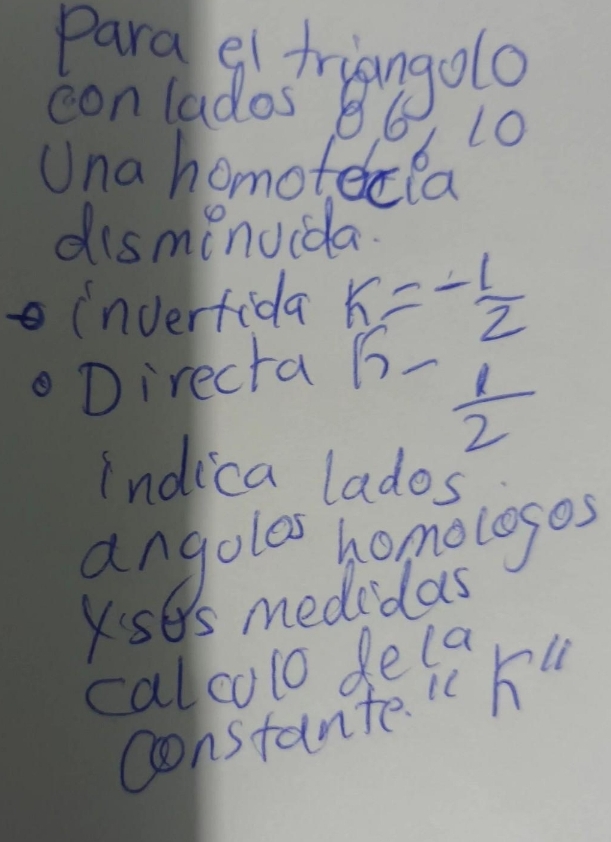 Para el triangolo
con lados 8, 6, 10
Una homotecia
disminuida.
• invertida K = -1/2
• Directa K - 1/2
indica lados
angulos homologos
y sus medidas
calculo de la
constante. "K"